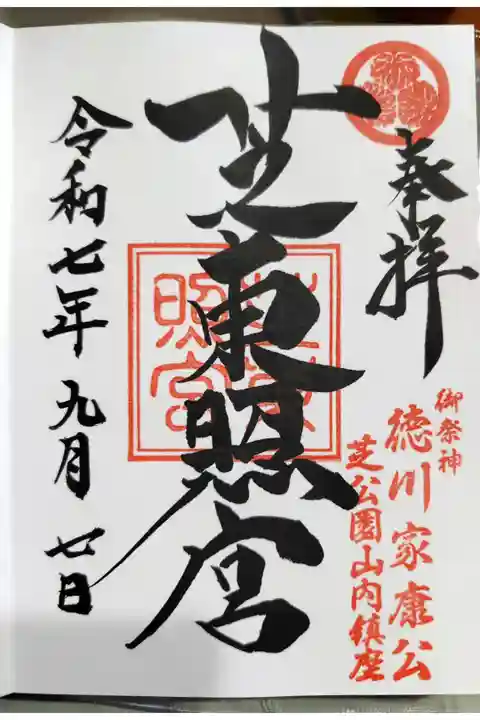 奉拝
御祭神
徳川家康公
芝公園山内鎮座
芝東照宮
芝東照宮
令和七年九月七日